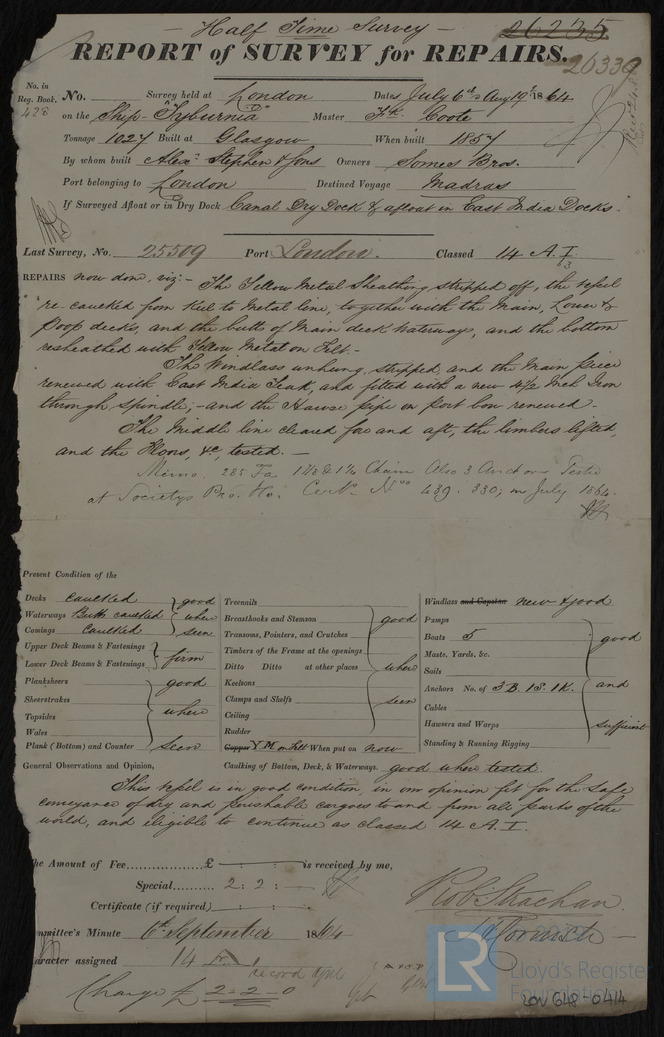 - Half Time Survey -
26235
REPORT of SURVEY for REPAIRS.
26330
No. in Reg. Book. 428
No. Survey held at London Dates July 6th & Aug 19th 1864
on the Ship "Tyburnia" Master Coote
Tonnage 1027 Built at Glasgow When built 1857
By whom built Alexr Stephen & Sons Owners Somes Bros.
Port belonging to London Destined Voyage Madras
If Surveyed Afloat or in Dry Dock Canal Dry Dock & afloat in East India Docks.
Last Survey, No. 25509 Port London. Classed 14 A.I. 63
REPAIRS now done, viz:- The Yellow Metal Sheathing stripped off, the vessel
re-caulked from Keel to Metal line, together with the Main, Lower &
Poop decks, and the butts of Main deck Waterways, and the bottom
resheathed with Yellow Metal on Felt.-
The Windlass unhung, stripped and the Main piece
renewed with East India Teak, and fitted with a new 4½ Inch Iron
through spindle;- and the Hawse pipe on port bow renewed.
The Middle line cleared fore and aft, the limbers lifted,
and the Floors, &c, tested. -
Memo. 285 Fa 1 Chain Also 3 Anchors Tested
at Societys Pro. Ho. Certs. Nos 439. 330; in July 1864.
Present Condition of the
Decks caulked good
Waterways Butts caulked when
Comings Caulked seen
Upper Deck Beams & Fastenings
Lower Deck Beams & Fastenings firm
Planksheers good
Sheerstrakes
Topsides where
Wales
Plank (Bottom) and Counter seen
Treenails
Breasthooks and Stemson good
Transons, Pointers, and Crutches
Timbers of the Frame at the openings
Ditto Ditto at other places where
Keelsons
Clamps and Shelfs seen
Ceiling
Rudder
Copper Y.M on Felt When put on now
Windlass and Capstan new & good
Pumps
Boats 5 good
Masts. Yards, &c.
Sails
Anchors No. of 3B. 1S. 1K. and
Cables
Hawsers and Warps sufficient
Standing & Running Rigging
General Observations and Opinion, Caulking of Bottom, Deck, & Waterways. good when tested.
This vessel is in good condition, in our opinion fit for the safe
conveyance of dry and perishable cargoes to and from all parts of the
world, and eligible to continue as classed 14 A.I.
he Amount of Fee £ is received by me,
Special 2 : 2 : -
Certificate (if required)
Robt Strachan.
mmittee's Minute 6th September 1864
aracter assigned 14 A 1
Charge £ 2-2-0
LR
Lloyd's Register
Foundation
LON 648-0414